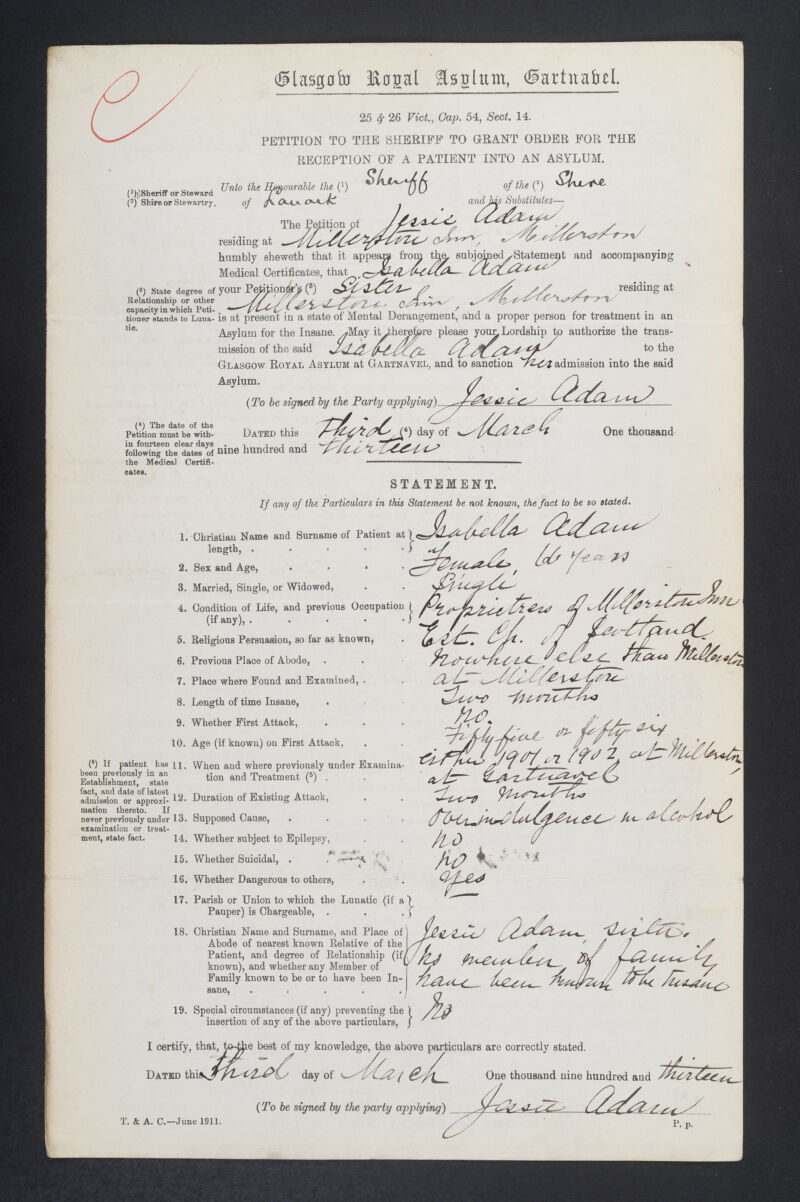 Glasgow Royal Asylum, Gartnavel.
25 & 26 Vict., Cap. 54, Sect. 14.
PETITION TO THE SHERIFF TO GRANT ORDER FOR THE
RECEPTION OF A PATIENT INTO AN ASYLUM.
(1) Sheriff or Steward
(2) Shire or Stewartry.
Unto the Honourable the (1) Sheriff of the (2) Shire
of Lanark and his Substitutes—
The Petition of Jessie Adam
residing at Millerston Inn, Millerston
humbly sheweth that it appears from the subjoined Statement and accompanying
Medical Certificates, that Isabella Adam
(3) State degree of
Relationship or other
capacity in which Peti-
tioner stands to Luna-
tic.
your Petitioner's (3) Sister residing at
Millerston Inn, Millerston
is at present in a state of Mental Derangement, and a proper person for treatment in an
Asylum for the Insane. May it therefore please your Lordship to authorize the trans-
mission of the said Isabella Adam to the
GLASGOW ROYAL ASYLUM at GARTNAVEL, and to sanction her admission into the said
Asylum.
(To be signed by the Party applying) Jessie Adam
(4) The date of the
Petition must be with-
in fourteen clear days
following the dates of
the Medical Certifi-
cates.
DATED this Third (4) day of March One thousand
nine hundred and thirteen
STATEMENT.
If any of the Particulars in this Statement be not known, the fact to be so stated.
1. Christian Name and Surname of Patient at
length, . Isabella Adam
2. Sex and Age, Female, 66 years
3. Married, Single, or Widowed, Single
4. Condition of Life, and previous Occupation
(if any), . Proprietress of Millerston Inn
5. Religious Persuasion, so far as known, Est. Ch. of Scotland
6. Previous Place of Abode, . Nowhere else than Millerston
7. Place where Found and Examined, . at Millerston
8. Length of time Insane, Two months
9. Whether First Attack, No.
10. Age (if known) on First Attack, Fifty five or fifty-six
(5) If patient has
been previously in an
Establishment, state
fact, and date of latest
admission or approxi-
mation thereto. If
never previously under
examination or treat-
ment, state fact.
11. When and where previously under Examina-
tion and Treatment (5) . either 1901 or 1902 at Millerston,
at Gartnavel
12. Duration of Existing Attack, Two months
13. Supposed Cause, Over indulgence in alcohol
14. Whether subject to Epilepsy, No
15. Whether Suicidal, . No
16. Whether Dangerous to others, Yes
17. Parish or Union to which the Lunatic (if a
Pauper) is Chargeable, .
18. Christian Name and Surname, and Place of
Abode of nearest known Relative of the
Patient, and degree of Relationship (if
known), and whether any Member of
Family known to be or to have been In-
sane,
Jessie Adam, sister.
No member of family
have been known to be Insane
19. Special circumstances (if any) preventing the
insertion of any of the above particulars, No
I certify, that, to the best of my knowledge, the above particulars are correctly stated.
DATED this Third day of March One thousand nine hundred and thirteen
(To be signed by the party applying) Jessie Adam
T. & A. C.—June 1911.
P. p.